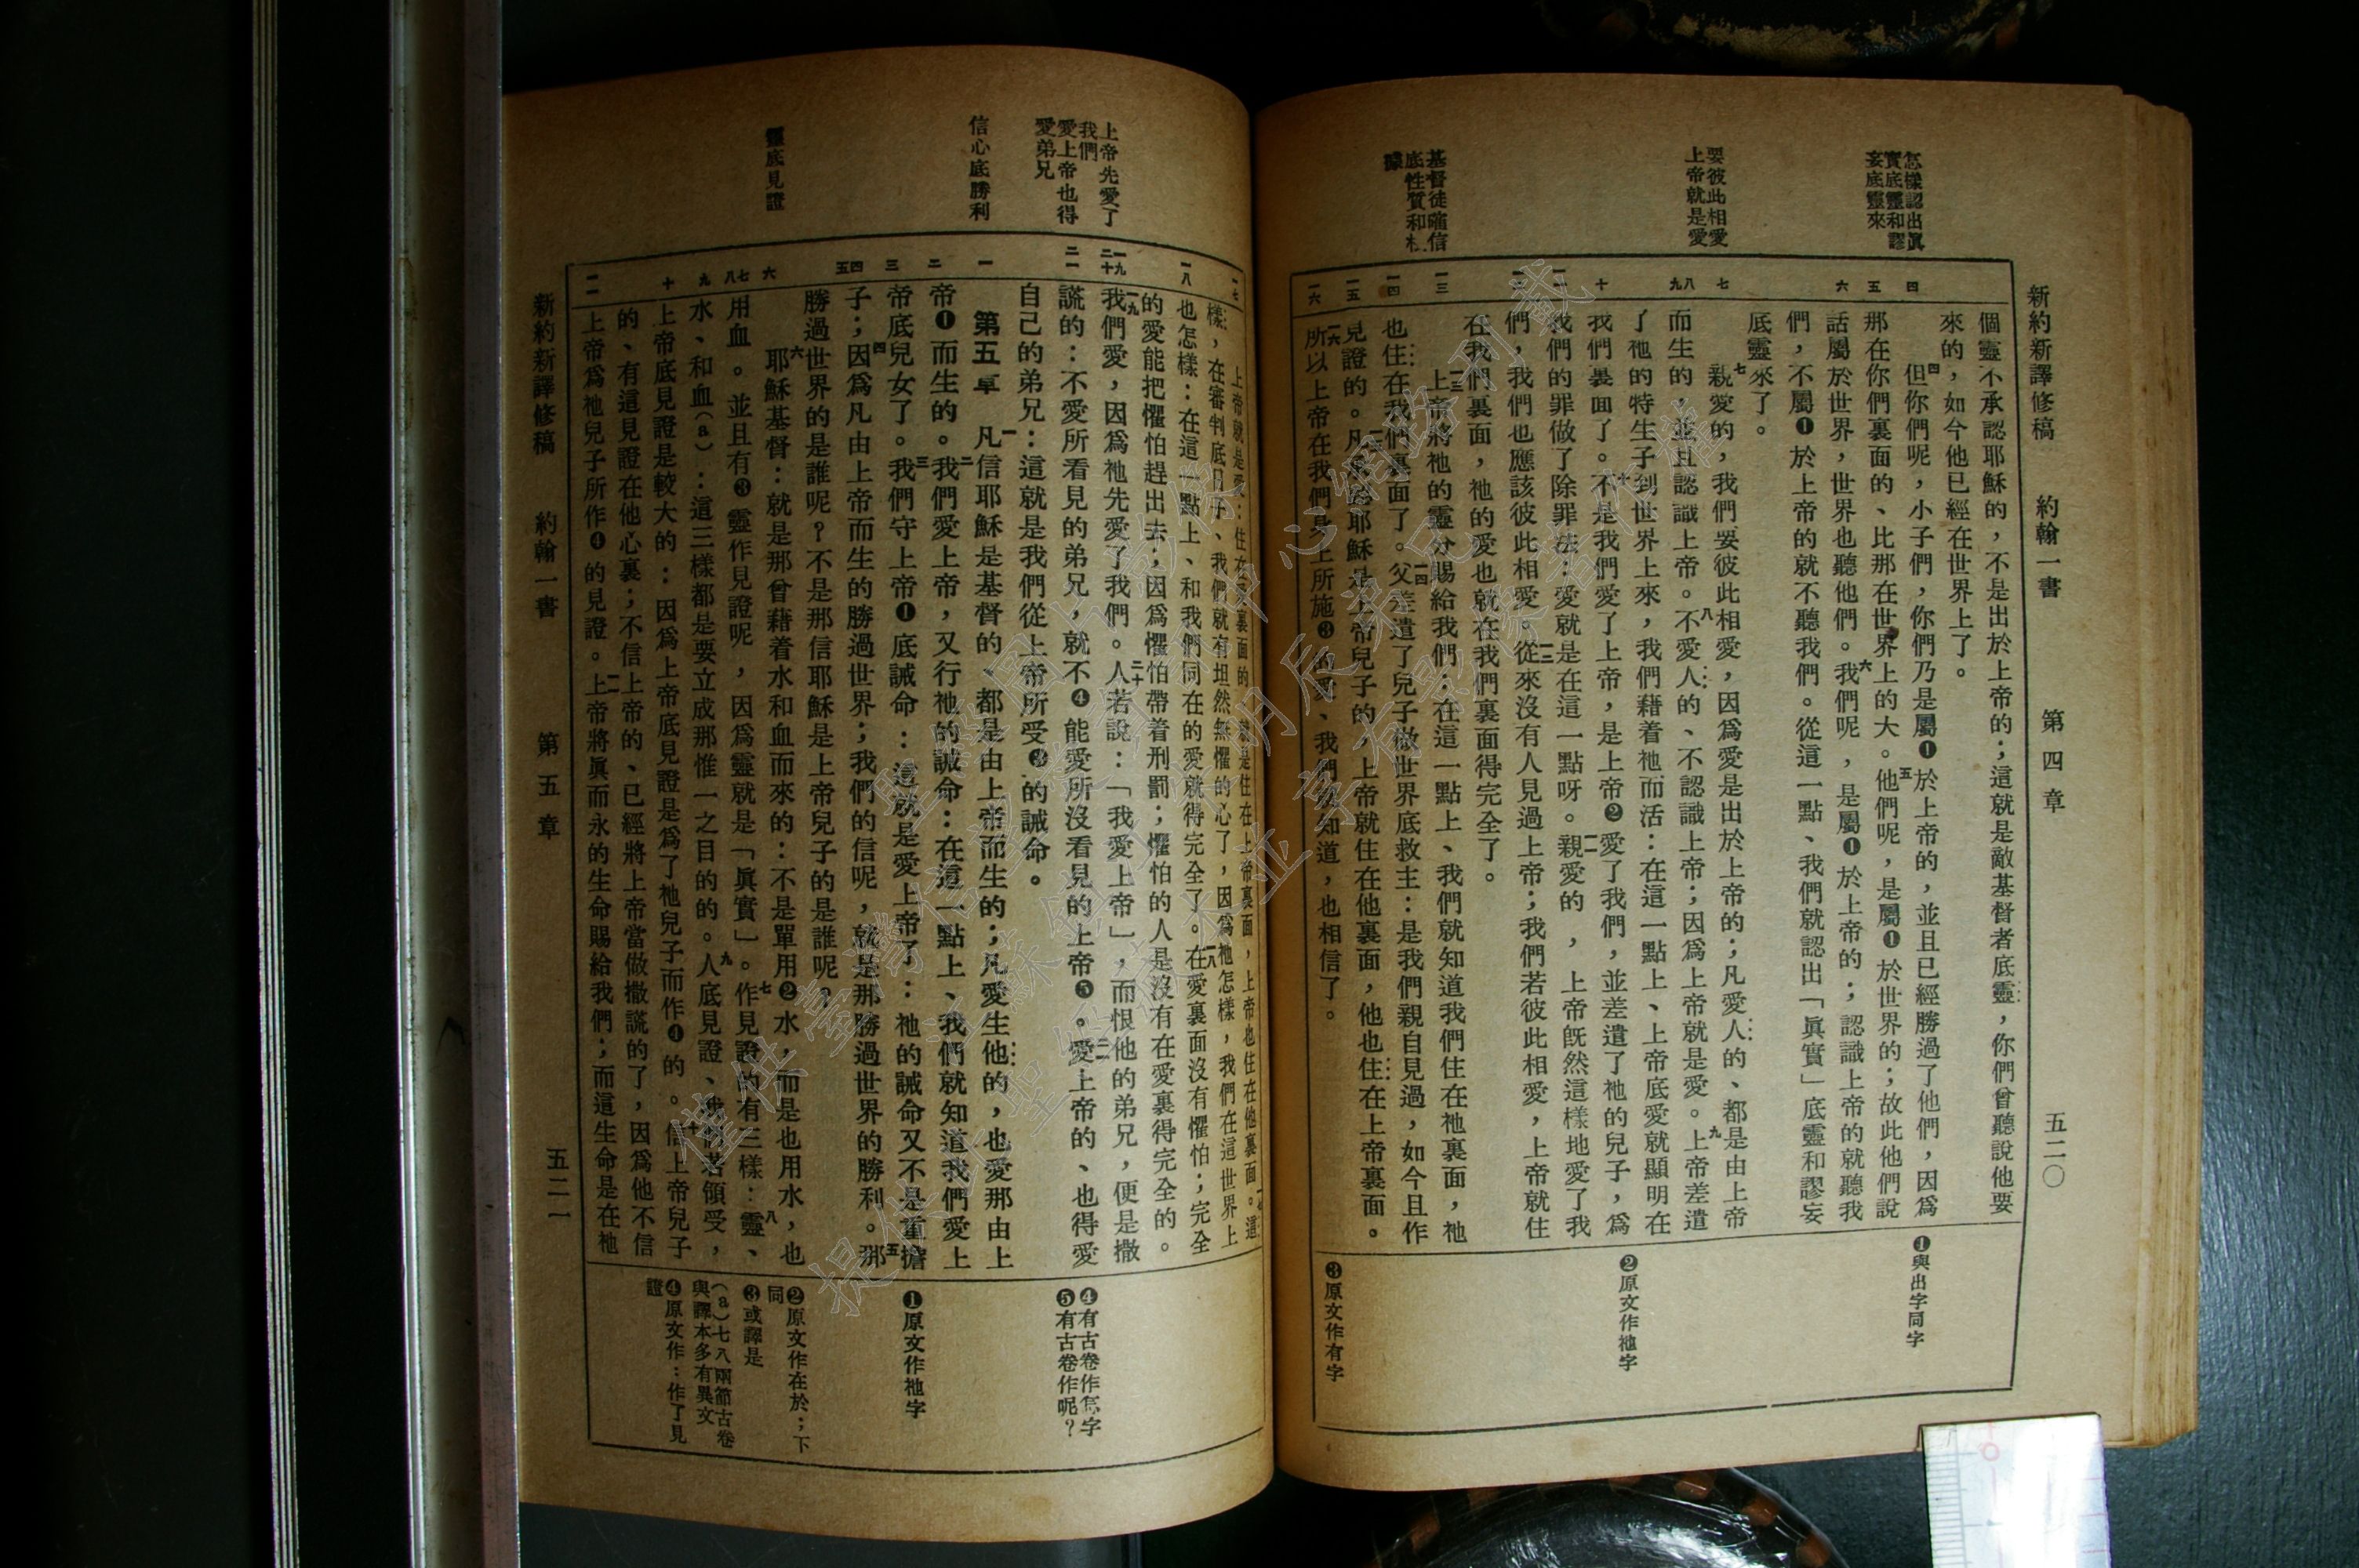 新約新譯修稿 約翰一書 第四章 五二〇
怎樣認出眞
實底靈和謬
妄底靈來
要彼此相愛
上帝就是愛
基督徒確信
底性質和根
據
四
五
六
七
八
九
十
一一
一二
一三
一四
一五
一六
個靈不承認耶穌的，不是出於上帝的；這就是敵基督者底靈，你們曾聽說他要
來的，如今他已經在世界上了。
四但你們呢，小子們，你們乃是屬❶於上帝的，並且已經勝過了他們，因爲
那在你們裏面的、比那在世界上的大。五他們呢，是屬❶於世界的；故此他們說
話屬於世界，世界也聽他們。六我們呢，是屬❶於上帝的；認識上帝的就聽我
們，不屬❶於上帝的就不聽我們。從這一點、我們就認出「眞實」底靈和謬妄
底靈來了。
七親愛的，我們要彼此相愛，因爲愛是出於上帝的；凡愛人的、都是由上帝
而生的，並且認識上帝。八不愛人的、不認識上帝；因爲上帝就是愛。九上帝差遣
了祂的特生子到世界上來，我們藉着祂而活：在這一點上、上帝底愛就顯明在
我們裏面了。十不是我們愛了上帝，是上帝❷愛了我們，並差遣了祂的兒子，爲
我們的罪做了除罪法：愛就是在這一點呀。一一親愛的，上帝旣然這樣地愛了我
們，我們也應該彼此相愛。一二從來沒有人見過上帝；我們若彼此相愛，上帝就住
在我們裏面，祂的愛也就在我們裏面得完全了。
一三上帝將祂的靈分賜給我們：在這一點上、我們就知道我們住在祂裏面，祂
也住在我們裏面了。一四父差遣了兒子做世界底救主：是我們親自見過，如今且作
見證的。一五凡承認耶穌是上帝兒子的，上帝就住在他裏面，他也住在上帝裏面。
一六所以上帝在我們身上所施❸的愛、我們都知道，也相信了。
❶與出字同字
❷原文作祂字
❸原文作有字
上帝先愛了
我們
愛上帝也得
愛弟兄
信心底勝利
靈底見證
一七
一八
一九
二十
二一
一
二
三
四
五
六
七
八
九
十
一一
上帝就是愛：住在愛裏面的、就是住在上帝裏面，上帝也住在他裏面。一七這
樣，在審判底日子、我們就有坦然無懼的心了，因爲祂怎樣，我們在這世界上
也怎樣：在這一點上、和我們同在的愛就得完全了。一八在愛裏面沒有懼怕；完全
的愛能把懼怕趕出去；因爲懼怕帶着刑罰；懼怕的人是沒有在愛裏得完全的。
一九我們愛，因爲祂先愛了我們。二十人若說：「我愛上帝」，而恨他的弟兄，便是撒
謊的：不愛所看見的弟兄，就不❹能愛所沒看見的上帝❺。二一愛上帝的、也得愛
自己的弟兄：這就是我們從上帝所受❸的誡命。
第五章 一凡信耶穌是基督的、都是由上帝而生的；凡愛生他的，也愛那由上
帝❶而生的。二我們愛上帝，又行祂的誡命：在這一點上、我們就知道我們愛上
帝底兒女了。三我們守上帝❶底誡命：這就是愛上帝了：祂的誡命又不是重擔
子；四因爲凡由上帝而生的勝過世界；我們的信呢，就是那勝過世界的勝利。五那
勝過世界的是誰呢？不是那信耶穌是上帝兒子的是誰呢？
六耶穌基督：就是那曾藉着水和血而來的：不是單用❷水，而是也用水，也
用血。並且有❸靈作見證呢，因爲靈就是「眞實」。七作見證的有三樣：八靈、
水、和血（a）：這三樣都是要立成那惟一之目的的。九人底見證、我們若領受，
上帝底見證是較大的：因爲上帝底見證是爲了祂兒子而作❹的。十信上帝兒子
的、有這見證在他心裏；不信上帝的、已經將上帝當做撒謊的了，因爲他不信
上帝爲祂兒子所作❹的見證。一一上帝將眞而永的生命賜給我們；而這生命是在祂
❹有古卷作怎字
❺有古卷作呢？
❶原文作祂字
❷原文作在於；下
同
❸或譯是
（a）七八兩節古卷
與譯本多有異文
❹原文作：作了見
證
新約新譯修稿 約翰一書 第五章 五二一